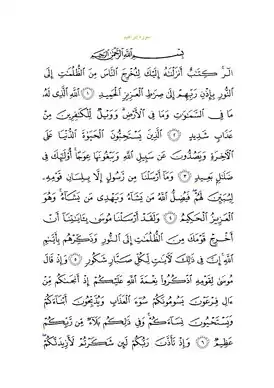 بِسْمِ ٱللَّهِ ٱلرَّحْمَٰنِ ٱلرَّحِيمِ
الٓرۚ كِتَٰبٌ أَنزَلْنَٰهُ إِلَيْكَ لِتُخْرِجَ ٱلنَّاسَ مِنَ ٱلظُّلُمَٰتِ إِلَى
ٱلنُّورِ بِإِذْنِ رَبِّهِمْ إِلَىٰ صِرَٰطِ ٱلْعَزِيزِ ٱلْحَمِيدِ ١ ٱللَّهِ ٱلَّذِى لَهُۥ
مَا فِى ٱلسَّمَٰوَٰتِ وَمَا فِى ٱلْأَرْضِۗ وَوَيْلٌ لِّلْكَٰفِرِينَ مِنْ
عَذَابٍ شَدِيدٍ ٢ ٱلَّذِينَ يَسْتَحِبُّونَ ٱلْحَيَوٰةَ ٱلدُّنْيَا عَلَى
ٱلْءَاخِرَةِ وَيَصُدُّونَ عَن سَبِيلِ ٱللَّهِ وَيَبْغُونَهَا عِوَجًاۚ أُو۟لَٰٓئِكَ فِى
ضَلَٰلٍۭ بَعِيدٍ ٣ وَمَآ أَرْسَلْنَا مِن رَّسُولٍ إِلَّا بِلِسَانِ قَوْمِهِۦ
لِيُبَيِّنَ لَهُمْۖ فَيُضِلُّ ٱللَّهُ مَن يَشَآءُ وَيَهْدِى مَن يَشَآءُۚ وَهُوَ
ٱلْعَزِيزُ ٱلْحَكِيمُ ٤ وَلَقَدْ أَرْسَلْنَا مُوسَىٰ بِـَٔايَٰتِنَآ أَنْ
أَخْرِجْ قَوْمَكَ مِنَ ٱلظُّلُمَٰتِ إِلَى ٱلنُّورِ وَذَكِّرْهُم بِأَيَّىٰمِ
ٱللَّهِۚ إِنَّ فِى ذَٰلِكَ لَءَايَٰتٍ لِّكُلِّ صَبَّارٍ شَكُورٍ ٥ وَإِذْ قَالَ
مُوسَىٰ لِقَوْمِهِ ٱذْكُرُوا۟ نِعْمَةَ ٱللَّهِ عَلَيْكُمْ إِذْ أَنجَىٰكُم مِّنْ
ءَالِ فِرْعَوْنَ يَسُومُونَكُمْ سُوٓءَ ٱلْعَذَابِ وَيُذَبِّحُونَ أَبْنَآءَكُمْ
وَيَسْتَحْيُونَ نِسَآءَكُمْۚ وَفِى ذَٰلِكُم بَلَآءٌ مِّن رَّبِّكُمْ
عَظِيمٌ ٦ وَإِذْ تَأَذَّنَ رَبُّكُمْ لَئِن شَكَرْتُمْ لَأَزِيدَنَّكُمْ